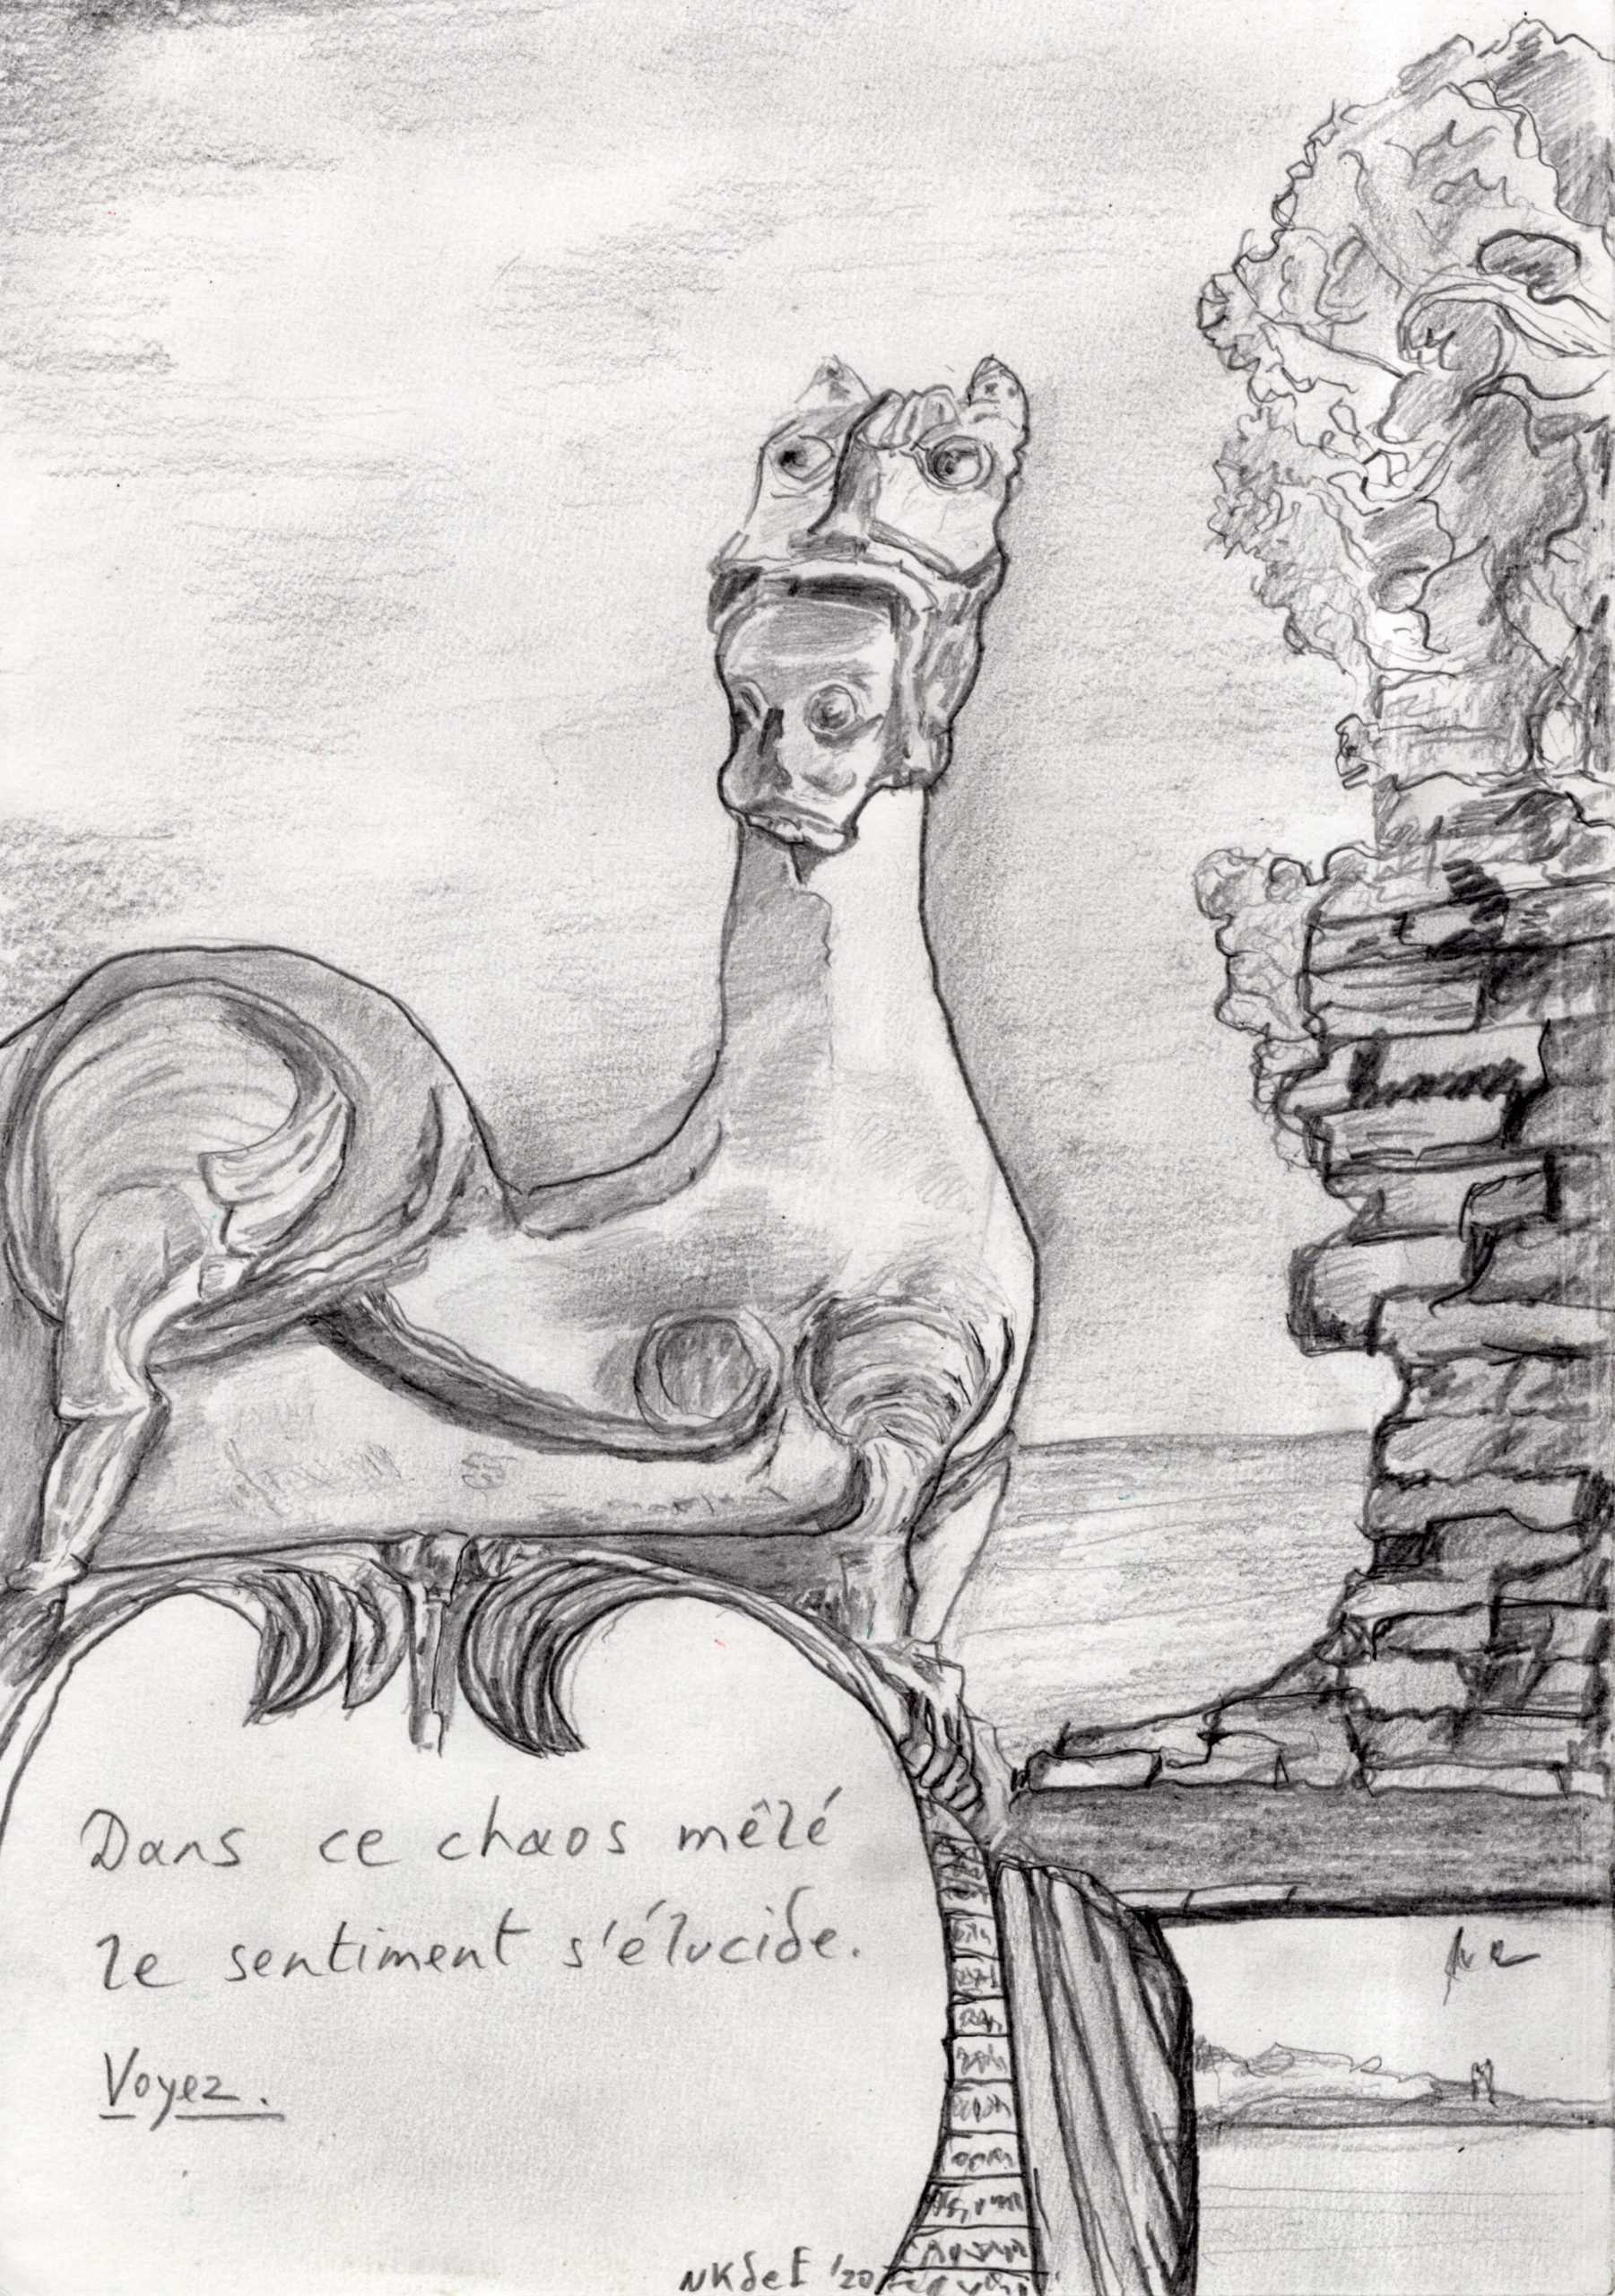 Dans ce chaos mêlé
le sentiment s'élucide.
Voyez.
NKdeE '20